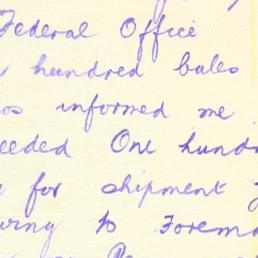 Federal Office
hundred bales
informed me
needed One hund
for shipment
to Forema